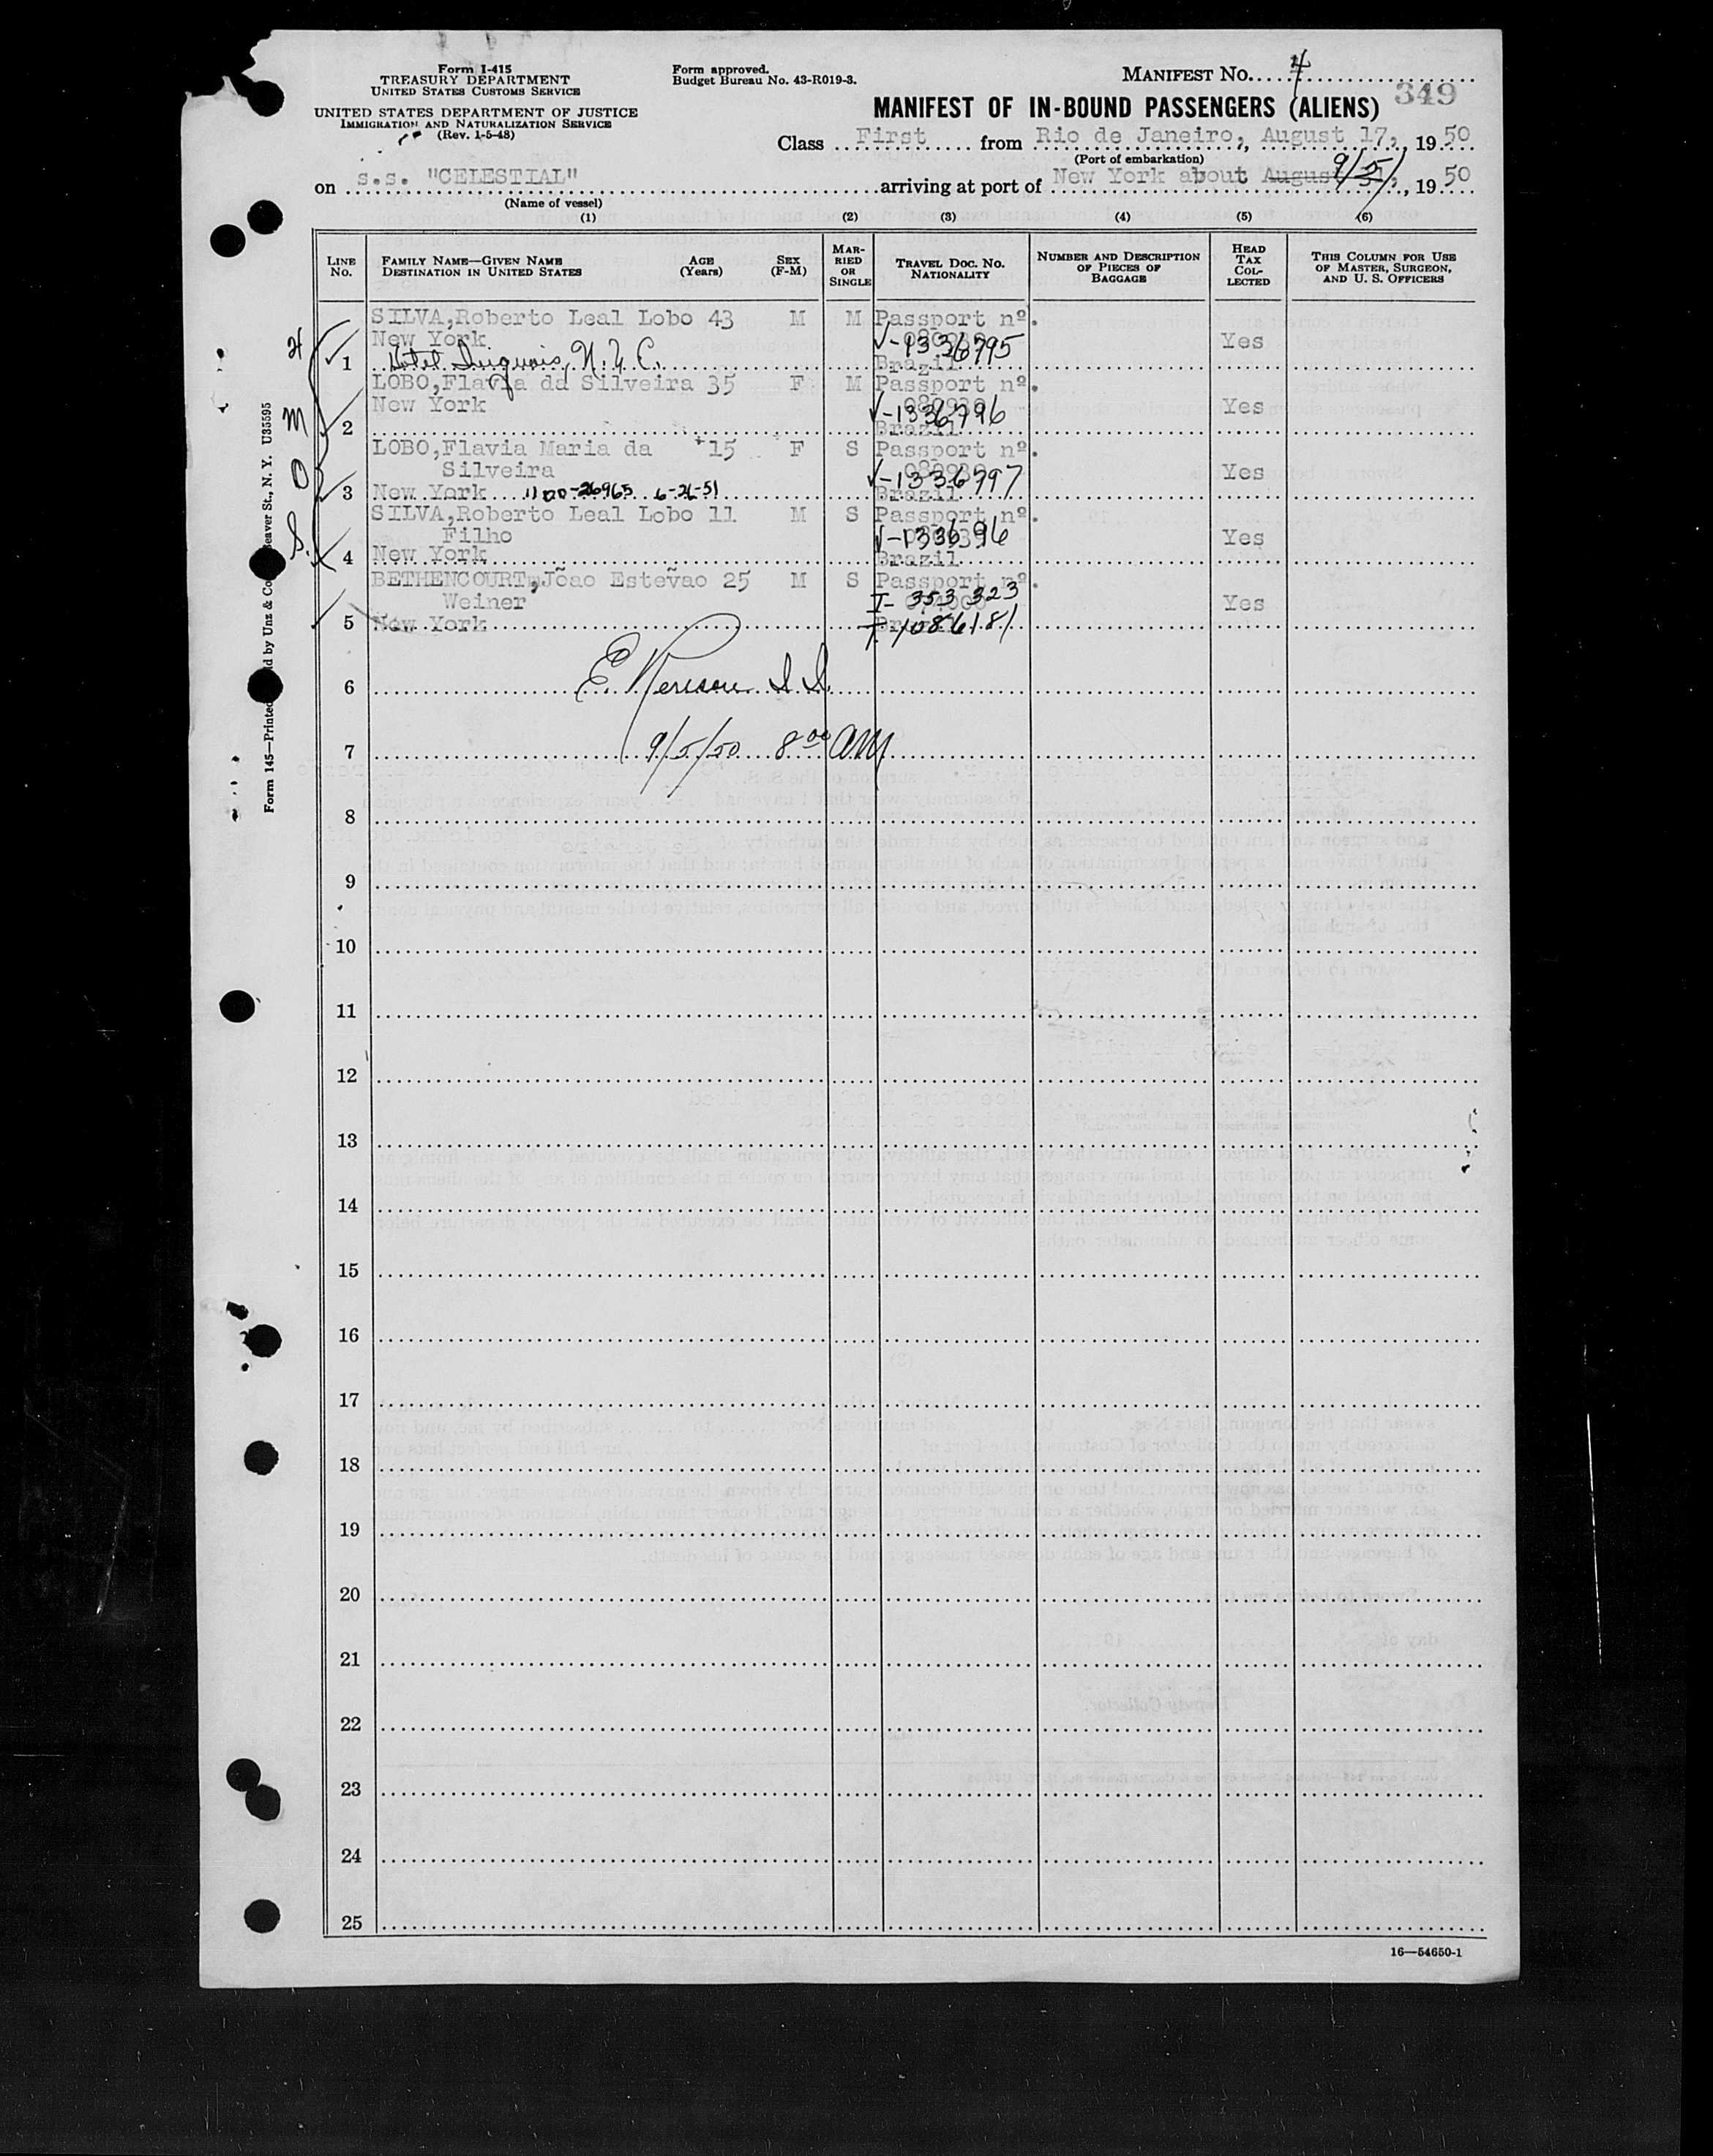 Form I-415
TREASURY DEPARTMENT
UNITED STATES CUSTOMS SERVICE
UNITED STATES DEPARTMENT OF JUSTICE
IMMIGRATION AND NATURALIZATION SERVICE
(Rev. 1-5-48)
Form approved.
Budget Bureau No. 43-R019-3.
MANIFEST No. 4
349
MANIFEST OF IN-BOUND PASSENGERS (ALIENS)
Class First from Rio de Janeiro, August 17, 1950
(Port of embarkation)
on s.s. "CELESTIAL" arriving at port of New York about August 31, 9/5/, 1950
(Name of vessel)
(1) (2) (3) (4) (5) (6)
LINE No.
FAMILY NAME—GIVEN NAME DESTINATION IN UNITED STATES
AGE (Years)
SEX (F-M)
MARRIED OR SINGLE
TRAVEL DOC. NO. NATIONALITY
NUMBER AND DESCRIPTION OF PIECES OF BAGGAGE
HEAD TAX COLLECTED
THIS COLUMN FOR USE OF MASTER, SURGEON, AND U. S. OFFICERS
SILVA, Roberto Leal Lobo 43 M M Passport nº.
New York V-1336795 Yes
1 Hotel N.Y.C. Brazil
LOBO, Flavia da Silveira 35 F M Passport nº.
New York V-1336796 Yes
2 Brazil
LOBO, Flavia Maria da 15 F S Passport nº.
Silveira V-1336797 Yes
3 New York -26965 6-26-51 Brazil
SILVA, Roberto Leal Lobo 11 M S Passport nº.
Filho Yes
4 New York Brazil
BETHENCOURT, Jõao Estevão 25 M S Passport nº.
Weiner I-353323 Yes
5 New York T-1086181 Brazil
6 E.
7 9/5/50 8 00 AM
8
9
10
11
12
13
14
15
16
17
18
19
20
21
22
23
24
25
16—54650-1
Form 145—Printed
d by Unz & Co
eaver St., N. Y. U35595